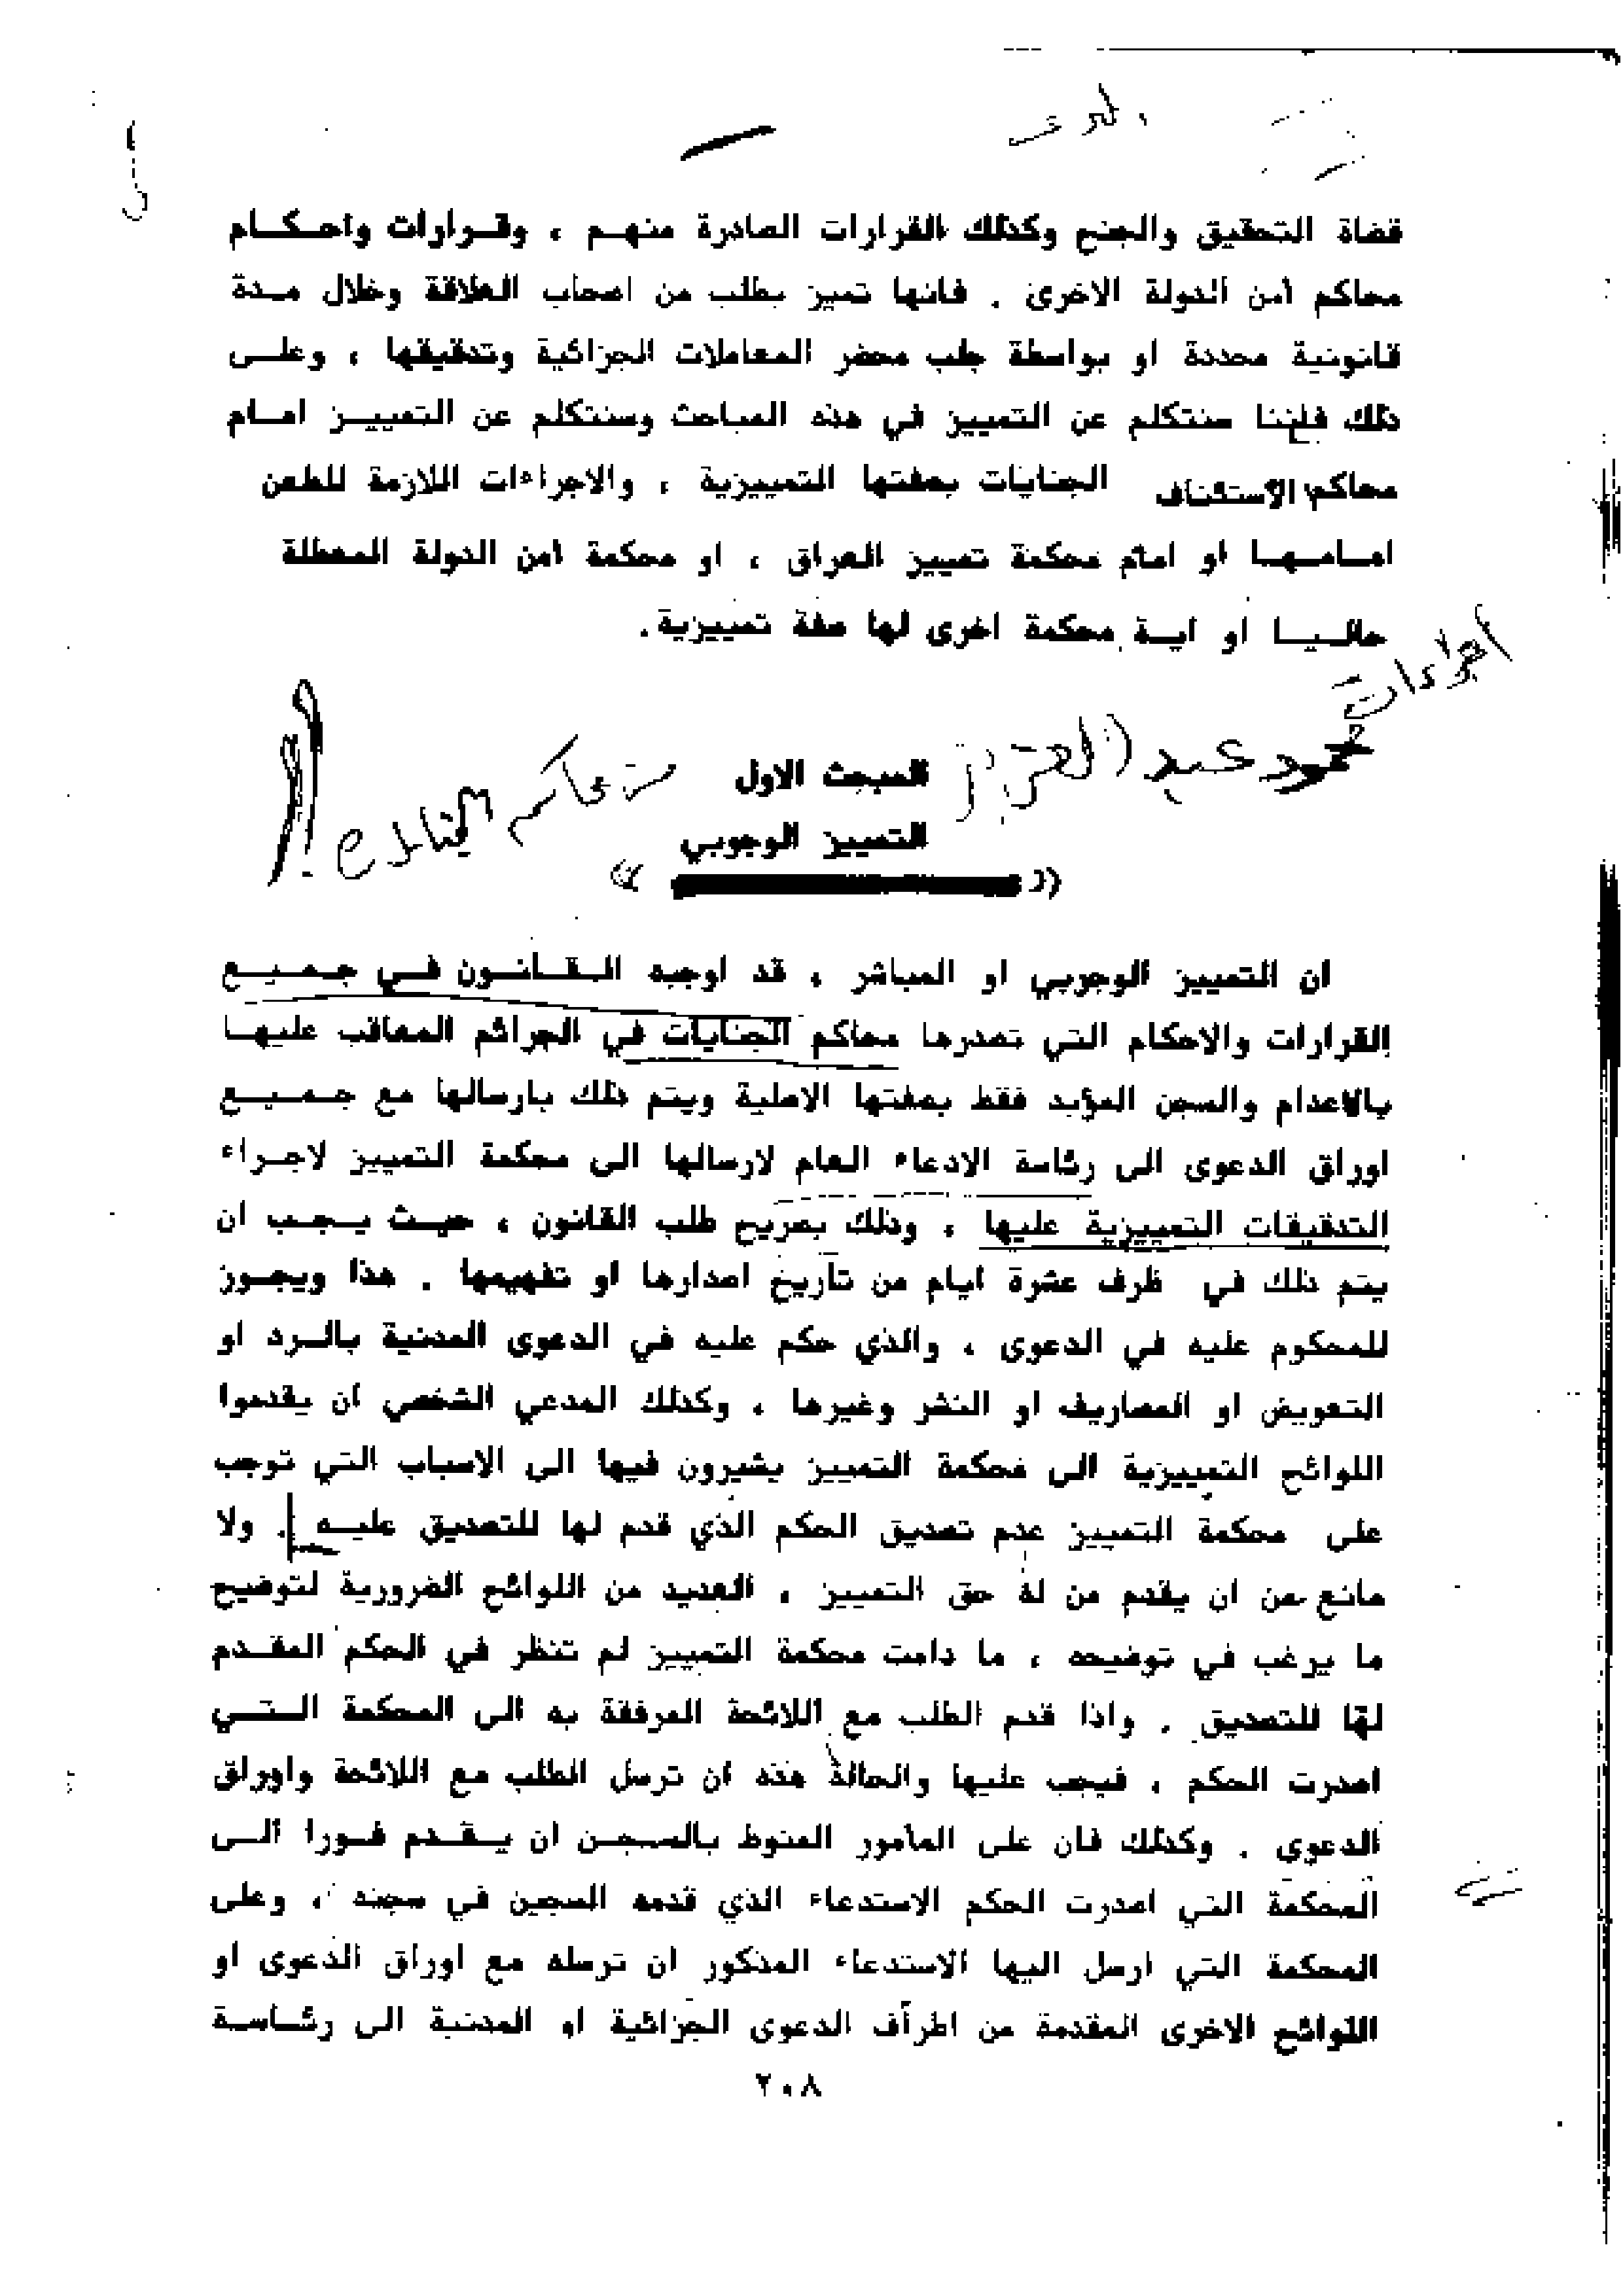 قضاة التحقيق والجنح وكذلك القرارات الصادرة منهـم ، وقـرارات واحـكـام
محاكم امن الدولة الاخرى . فانها تميز بطلب من اصحاب العلاقة وخلال مـدة
قانونية محددة او بواسطة جلب محضر المعاملات الجزائية وتدقيقها ، وعلـى
ذلك فاننا سنتكلم عن التمييز في هذه المباحث وسنتكلم عن التمييـز امـام
محاكم الأستئناف الجنايات بصفتها التمييزية ، والاجراءات اللازمة للطعن
امـامـهـا او امام محكمة تمييز العراق ، او محكمة امن الدولة المعطلة
حالـيـا او ايـة محكمة اخرى لها صفة تمييزية.
أجراءات
محمود عبد العزيز
المبحث الاول
التمييز الوجوبي
ان التمييز الوجوبي او المباشر ، قد اوجبه الـقـانـون فـي جـمـيـع
القرارات والاحكام التي تصدرها محاكم الجنايات في الجرائم المعاقب عليهـا
بالاعدام والسجن المؤبد فقط بصفتها الاصلية ويتم ذلك بارسالها مع جـمـيـع
اوراق الدعوى الى رئاسة الادعاء العام لارسالها الى محكمة التمييز لاجـراء
التدقيقات التمييزية عليها ، وذلك بصريح طلب القانون ، حيـث يـجـب ان
يتم ذلك في ظرف عشرة ايام من تأريخ اصدارها او تفهيمها . هذا ويجـوز
للمحكوم عليه في الدعوى ، والذي حكم عليه في الدعوى المدنية بالـرد او
التعويض او المصاريف او النشر وغيرها ، وكذلك المدعي الشخصي ان يقدموا
اللوائح التمييزية الى محكمة التمييز يشيرون فيها الى الاسباب التي توجب
على محكمة التمييز عدم تصديق الحكم الذي قدم لها للتصديق عليـه . ولا
مانع من ان يقدم من له حق التمييز ، العديد من اللوائح الضرورية لتوضيح
ما يرغب في توضيحه ، ما دامت محكمة التمييز لم تنظر في الحكم المقـدم
لها للتصديق . واذا قدم الطلب مع اللائحة المرفقة به الى المحكمة الـتـي
اصدرت الحكم ، فيجب عليها والحالة هذه ان ترسل الطلب مع اللائحة واوراق
الدعوى . وكذلك فان على المأمور المنوط بالسـجـن ان يـقـدم فـورا الـى
المحكمة التي اصدرت الحكم الاستدعاء الذي قدمه السجين في سجنه ، وعلى
المحكمة التي ارسل اليها الاستدعاء المذكور ان ترسله مع اوراق الدعوى او
اللوائح الاخرى المقدمة من اطراف الدعوى الجزائية او المدنية الى رئـاسـة
٢٠٨